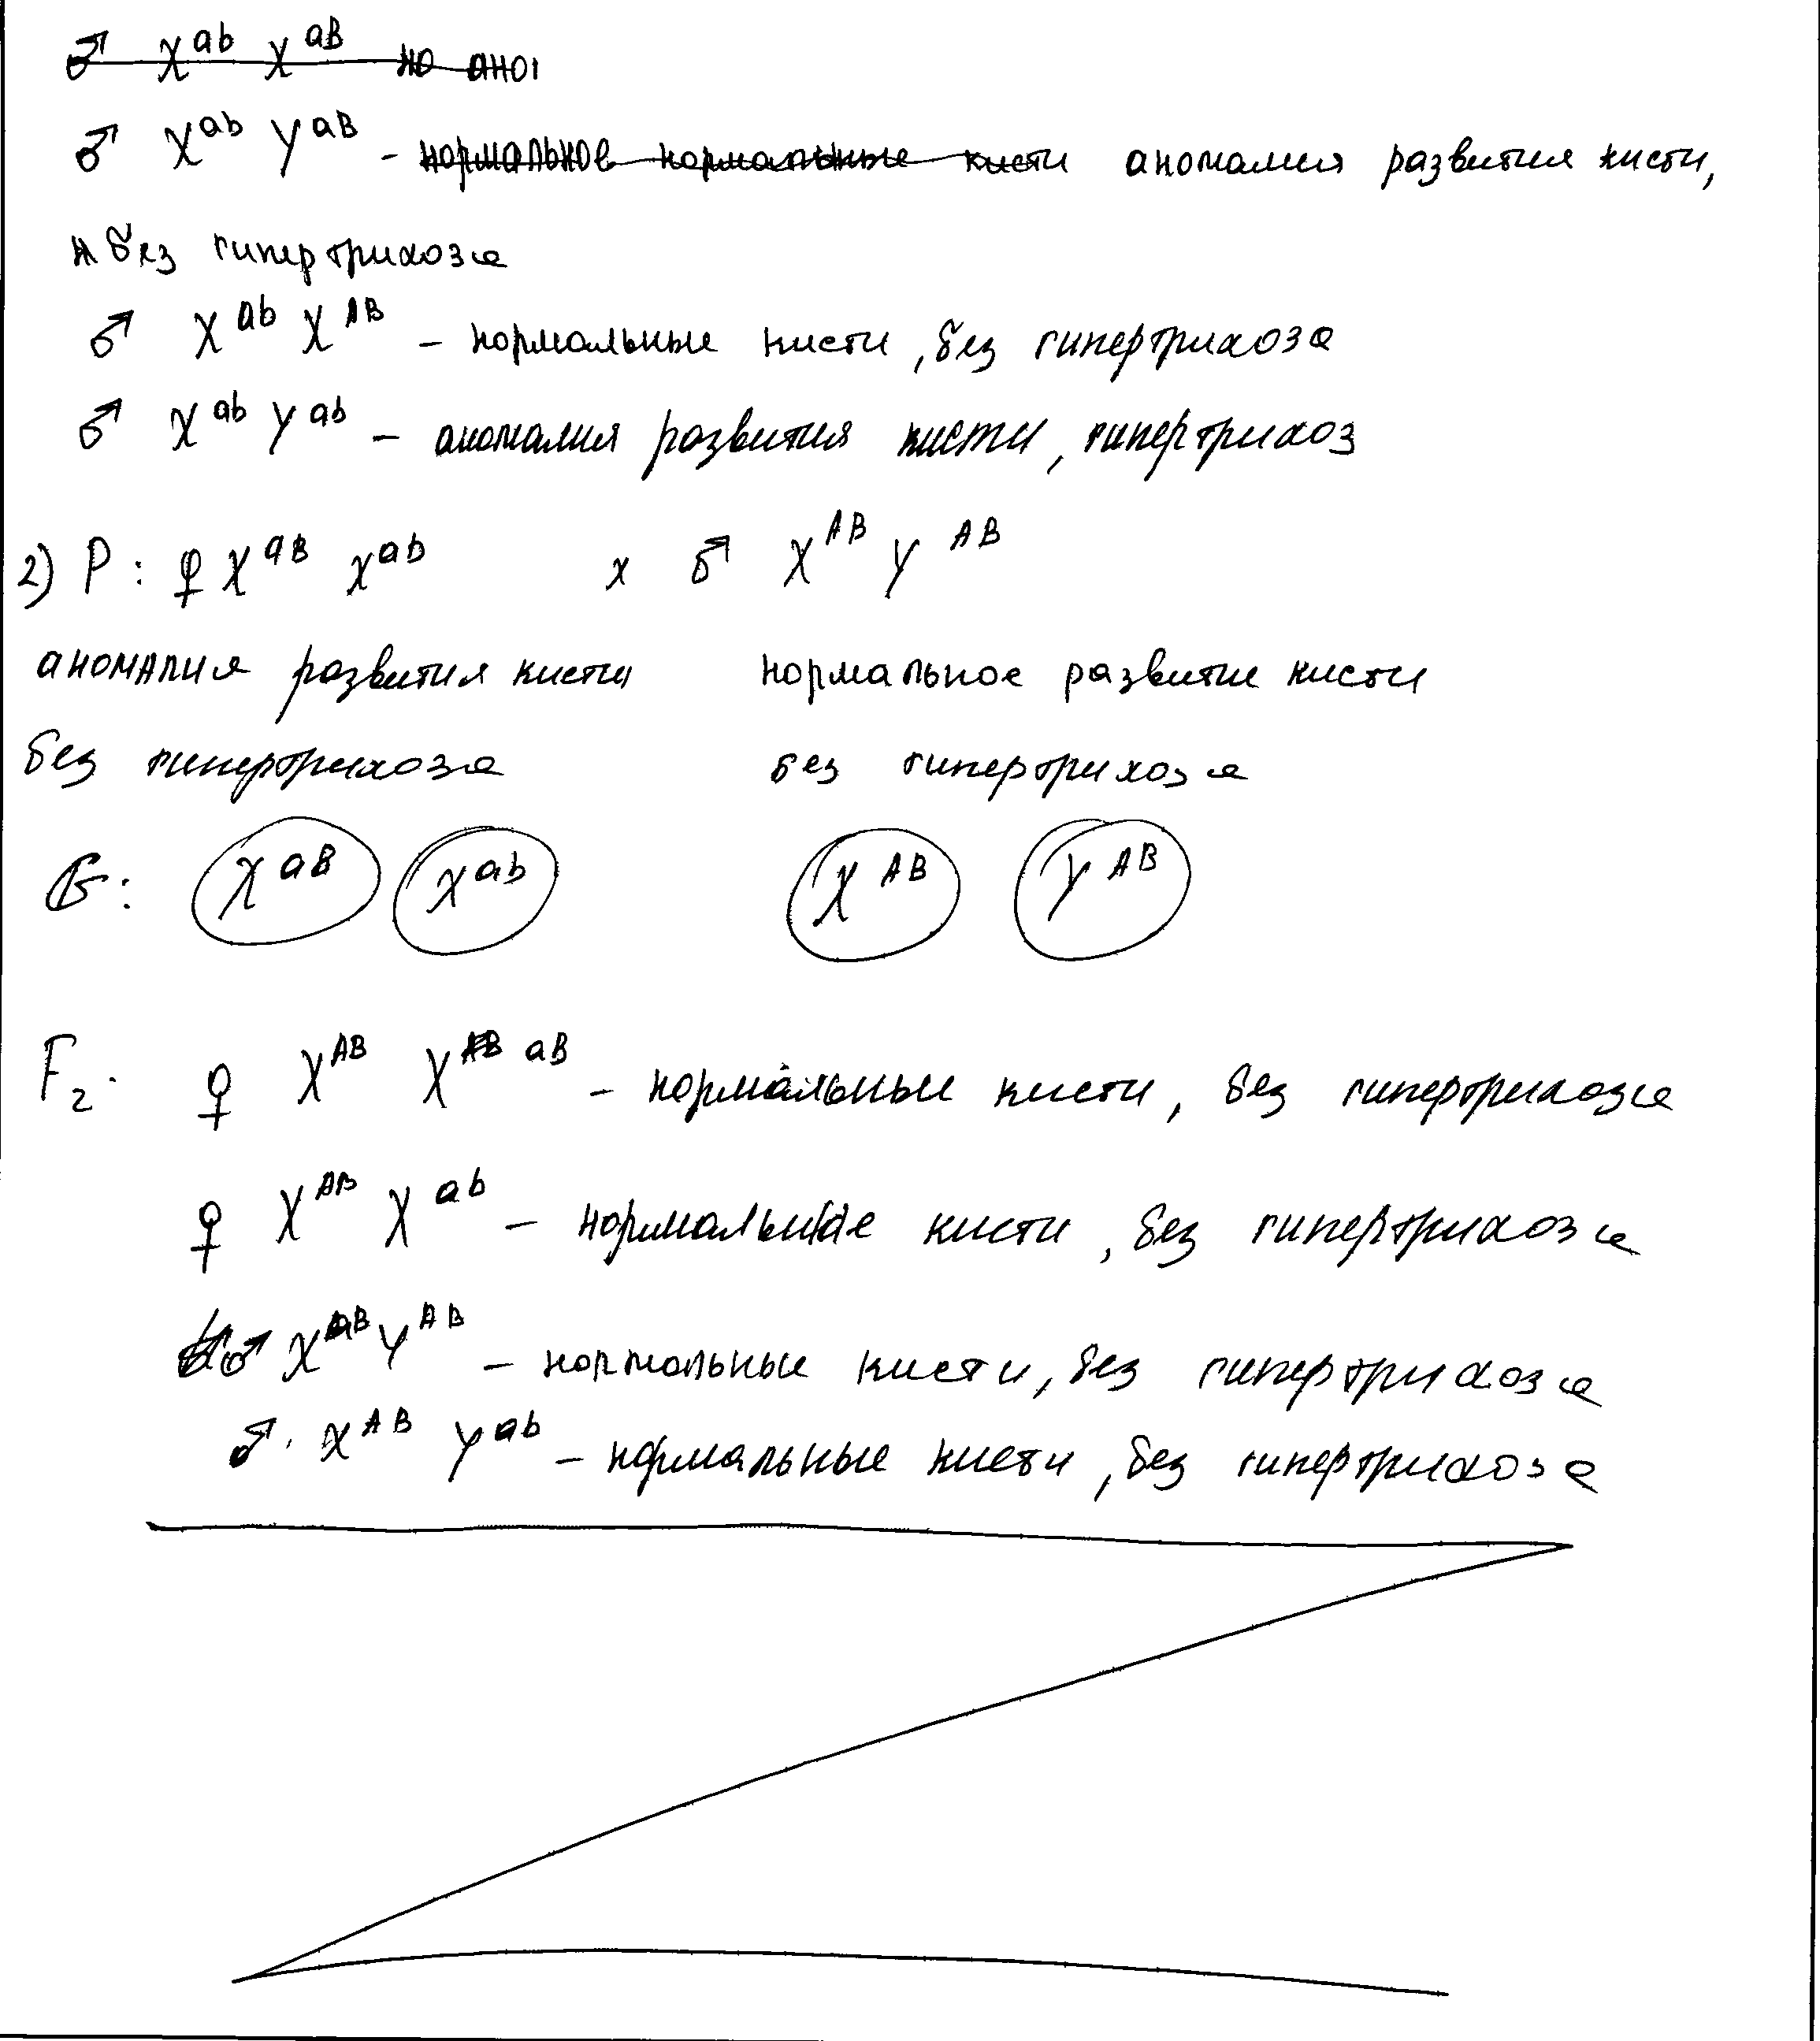 ♂ X^ab X^aB но аног
♂ X^ab Y^aB - нормальное нормальные кисти аномалия развития кисти,
без гипертрихоза
♂ X^ab X^AB – нормальные кисти, без гипертрихоза
♂ X^ab Y^ab – аномалия развития кисти, гипертрихоз
2) P: ♀ X^aB X^ab x ♂ X^AB Y^AB
аномалия развития кисти нормальное развитие кисти
без гипертрихоза без гипертрихоза
G: X^aB X^ab X^AB Y^AB
F₂. ♀ X^AB X^aB – нормальные кисти, без гипертрихоза
♀ X^AB X^ab – нормальные кисти, без гипертрихоза
♂ X^aB Y^AB – нормальные кисти, без гипертрихоза
♂. X^AB Y^ab – нормальные кисти, без гипертрихоза